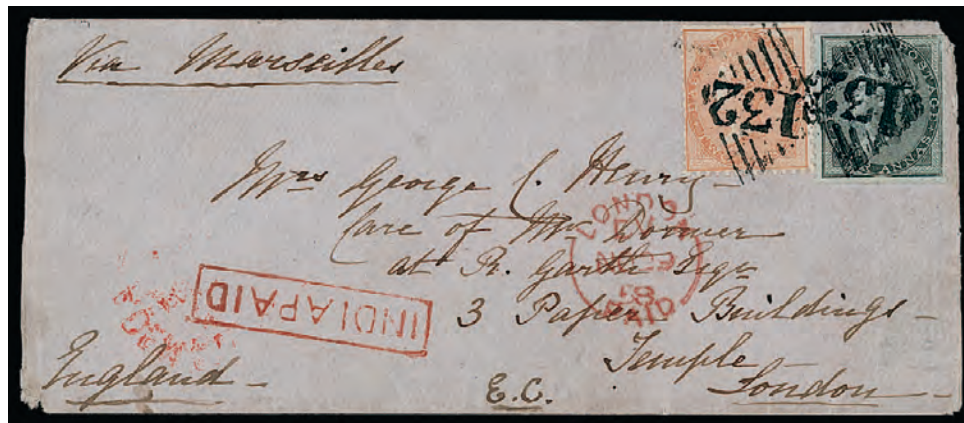 Via Marseilles
132 132
ANNAS
Mrs George C. Henry
Care of Mr Dorner
at R. Garth Esqr
3 Paper Buildings
Temple
London
E.C.
England
INDIA PAID
LONDON
PAID